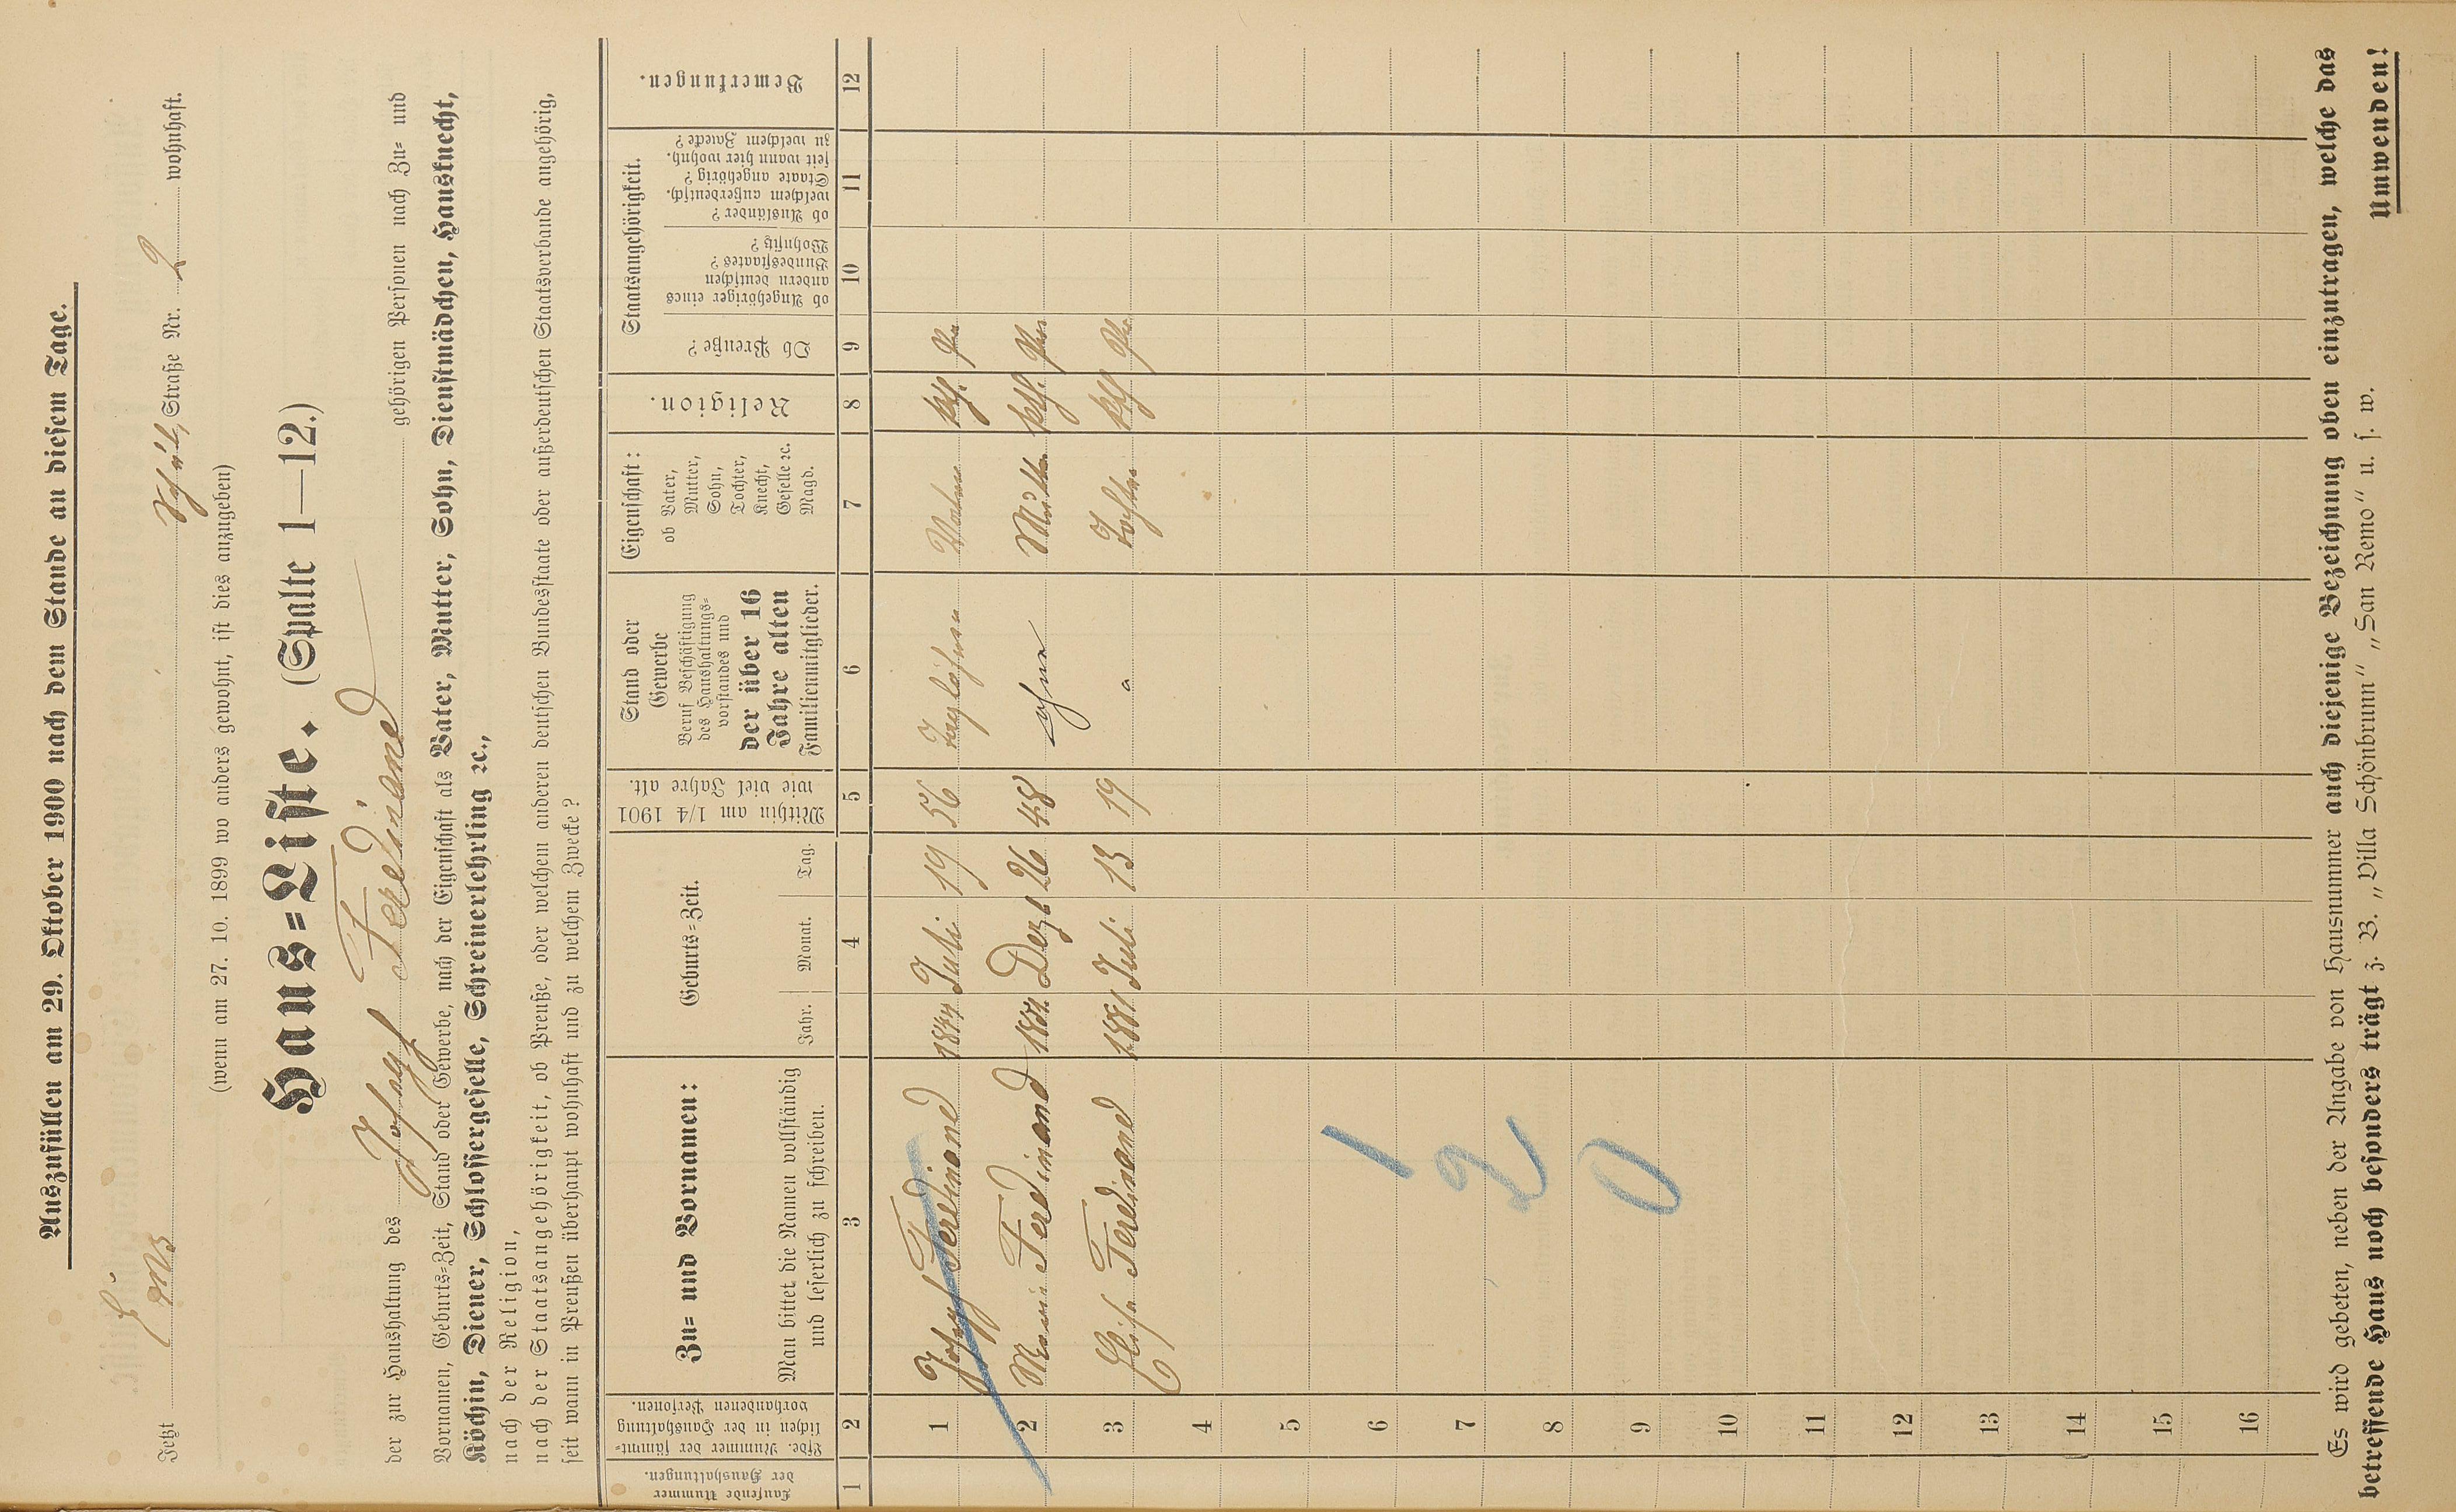 Auszufüllen am 29. Oktober 1900 nach dem Stande an diesem Tage.
Jetzt Ems Schul, Straße Nr. 2 wohnhaft.
(wenn am 27. 10. 1899 wo anders gewohnt, ist dies anzugeben)
Haus=Liste. (Spalte 1—12.)
der zur Haushaltung des Joseph Ferdinand gehörigen Personen nach Zu= und
Vornamen, Geburts=Zeit, Stand oder Gewerbe, nach der Eigenschaft als Vater, Mutter, Sohn, Dienstmädchen, Hausknecht,
Köchin, Diener, Schlossergeselle, Schreinerlehrling ꝛc.,
nach der Religion,
nach der Staatsangehörigkeit, ob Preuße, oder welchem anderen deutschen Bundesstaate oder außerdeutschen Staatsverbande angehörig,
seit wann in Preußen überhaupt wohnhaft und zu welchem Zwecke?
Laufende Nummer der Haushaltungen.
Lfde. Nummer der sämmt=
lichen in der Haushaltung
vorhandenen Personen.
Zu= und Vornamen:
Man bittet die Namen vollständig
und leserlich zu schreiben.
Geburts=Zeit.
Jahr. Monat. Tag.
Mithin am 1/4 1901
wie viel Jahre alt.
Stand oder
Gewerbe
Beruf Beschäftigung
des Haushaltungs=
vorstandes und
der über 16
Jahre alten
Familienmitglieder.
Eigenschaft:
ob Vater,
Mutter,
Sohn,
Tochter,
Knecht,
Geselle ꝛc.
Magd.
Religion.
Staatsangehörigkeit.
Ob Preuße?
ob Angehöriger eines
andern deutschen
Bundesstaates?
Wohnsitz?
ob Ausländer?
welchem außerdeutsch.
Staate angehörig?
seit wann hier wohnh.
zu welchem Zwecke?
Bemerkungen.
1 2 3 4 5 6 7 8 9 10 11 12
1 Joseph Ferdinand 1844 Juli 19 56 Taglöhner Vater kth. Pr
2 Maria Ferdinand Dezb 26 48 ohne Mutter kth. Prs
3 Elise Ferdinand 1881 Juli 13 19 " Tochter kth Pr
4
5
6
7
8
9
10
11
12
13
14
15
16
1
2
0
Es wird gebeten, neben der Angabe von Hausnummer auch diejenige Bezeichnung oben einzutragen, welche das
betreffende Haus noch besonders trägt z. B. „Villa Schönbrunn" „San Remo" u. s. w.
Umwenden!